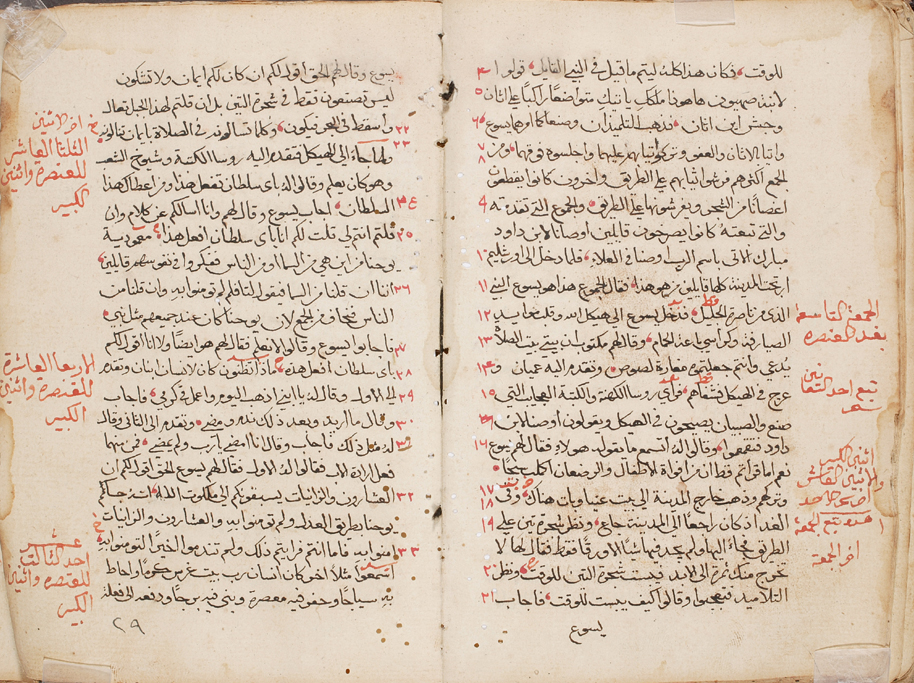 للوقت فكان هذا كله ليتم ما قيل في النبي القايل قولوا ٤
لابنة صهيون ها هوذا ملكك ياتيك متواضعا راكبا على اتان ٥
وجحش ابن اتان فذهب التلميذان وصنعا كما امرهما يسوع ٦
واتيا بالاتان والعفو وتركوا ثيابهم عليهما واجلسوه فوقهما ومن ٧ ٨
الجمع اكثرهم فرشوا ثيابهم على الطريق واخرون كانوا يقطعون
اغصانا من الشجر ويفرشونها على الطريق والجموع التي تقدمته ٩
والتي تبعته كانوا يصرخون قايلين اوصانا لابن داود
مبارك الاتي باسم الرب اوصنا في العلاء فلما دخل الى اورشليم ١٠
ارتجت المدينة كلها قايلين من هو هذا فقال الجموع هذا هو يسوع النبي ١١
الذي من ناصرة الجليل فدخل يسوع الى هيكل الله وقلب موايد ١٢
الصيارفة وكراسي باعة الحمام وقال لهم مكتوب ان بيتي بيت الصلاة ١٣
يدعى وانتم جعلتموه مغارة للصوص وتقدم اليه عميان و ١٤
عرج في الهيكل فشفاهم فراى روسا الكهنة والكتبة العجايب التي ١٥
صنع والصبيان يصيحون في الهيكل ويقولون اوصنا لابن
داود فتقمقموا وقالوا له اتسمع ما يقوله هولاء فقال لهم يسوع ١٦
نعم اما قراتم قط ان من افواه الاطفال والرضعان اكملت سبحا
وتركهم وذهب خارج المدينة الى بيت عنيا وبات هناك وفي ١٧ ١٨
الغد اذ كان راجعا الى المدينة جاع ونظر شجرة تين على ١٩
الطريق فجاء اليها ولم يجد فيها شيا الا ورقا فقط فقال لها لا
تخرج منك ثمرة الى الابد فيبست شجرة التين للوقت ونظر ٢٠
التلاميذ فتعجبوا وقالوا كيف يبست للوقت فاجاب ٢١
يسوع
الجمعة التاسعة
بعد العنصرة
اثنين الكبير
اخر الجمعة
يسوع وقال لهم الحق اقول لكم ان كان لكم ايمان ولا تشكون
ليس تصنعون فقط في شجرة التين بل ان قلتم لهذا الجبل تعال
واسقط في البحر فيكون وكلما تسالونه في الصلاة بايمان تنالونه ٢٢
ولما جاء الى الهيكل فتقدم اليه روسا الكهنة وشيوخ الشعب ٢٣
وهو كان يعلم وقالوا له باي سلطان تفعل هذا ومن اعطاك هذا
السلطان اجاب يسوع وقال لهم وانا اسالكم عن كلام وان ٢٤
قلتم انتم لي قلت لكم انا باي سلطان افعل هذا معمودية ٢٥
يوحنا من اين هي من السما او من الناس ففكروا في نفوسهم قايلين
اننا ان قلنا من السما فيقول لنا فلم لم تومنوا به وان قلنا من ٢٦
الناس نخاف من الجمع لان يوحنا كان عند جميعهم مثل نبي
فاجابوا يسوع وقالوا لا نعلم فقال لهم هو ايضا ولا انا اقول لكم ٢٧
باي سلطان افعل هذه ماذا تظنون كان لانسان ابنان وتقدم ٢٨
الى الاول وقال له يا ابني اذهب اليوم واعمل في كرمي فاجاب ٢٩
وقال ما اريد وبعد ذلك ندم ومضى وتقدم الى الثاني وقال ٣٠
له مثل ذلك فاجاب وقال انا امضي يا رب ولم يمضي فمن منهما ٣١
فعل ارادة الاب فقالوا له الاول فقال لهم يسوع الحق اقول لكم ان
العشارون والزانيات يسبقونكم الى ملكوت الله اذ جاكم ٣٢
يوحنا بطريق العدل ولم تومنوا به والعشارون والزانيات
امنوا به فاما انتم فرايتم ذلك ولم تندموا اخيرا لتومنوا به ٣٣
اسمعوا مثلا اخر كان انسان رب بيت غرس كرما واحاط
به سياجا وحفر فيه معصرة وبنى فيه برجا ودفعه الى فعلة
٢٩
اخر الاثنين
الثلثا العاشر
للعنصرة واثنين
الكبير
الاربعا العاشرة
للعنصرة واثنين
الكبير
احد الثالث عشر
للعنصرة واثنين
الكبير